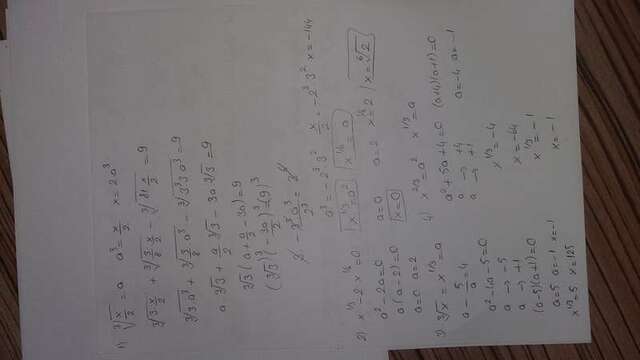 1) ∛(x/2) = a   a³ = x/2   x = 2a³
∛(3·x/2) + ∛(3/8·x/2) - ∛(81 x/2) = 9
∛(3a³) + ∛(3/8 a³) - ∛(3³3a³) = 9
a ∛3 + a/2 ∛3 - 3a ∛3 = 9
∛3 (a + a/2 - 3a) = 9
(∛3)³ (-3a/2)³ = (9)³
a³ = -2³ 3²   x/2 = -2³ 3²   x = -144
2) x^(1/3) - 2 x^(1/6) = 0   x^(1/3) = a²   x^(1/6) = a
a² - 2a = 0   a = 0   a = 2   x^(1/6) = 2   x = ⁶√2
a(a-2) = 0   x = 0
a = 0   a = 2
3) ∛x = x^(1/3) = a
a - 5/a = 4
a² - 4a - 5 = 0
a → -5
a → +1
(a-5)(a+1) = 0
a = 5   a = -1   x = -1
x^(1/3) = 5   x = 125
4) x^(2/3) = a²   x^(1/3) = a
a² + 5a + 4 = 0   (a+4)(a+1) = 0
a → +4   a = -4   a = -1
a → +1
x^(1/3) = -4
x = -64
x^(1/3) = -1
x = -1